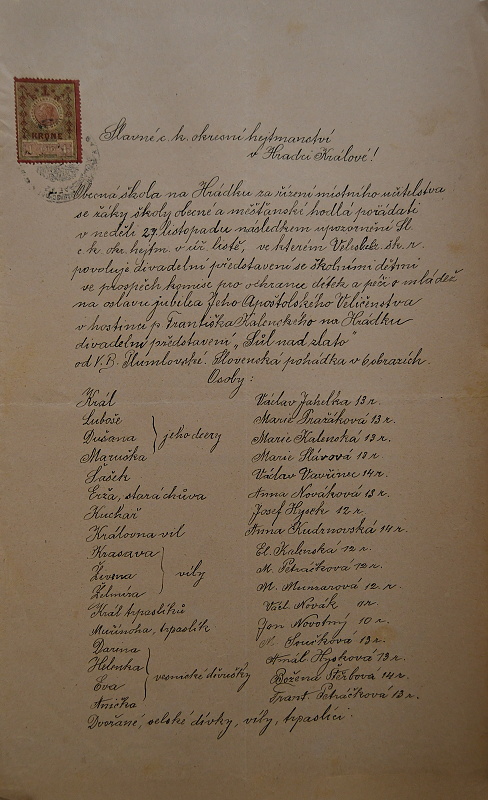 1
KRONE
Slavné c. k. okresní hejtmanství
v Hradci Králové!
Obecná škola na Hrádku za řízení místního učitelstva
se žáky školy obecné a měšťanské hodlá pořádati
v neděli 29. listopadu následkem upozornění Sl.
c. k. okr. hejtm. v úř. listě, ve kterém Veleslt. šk. r.
povoluje divadelní představení se školními dětmi
ve prospěch komise pro ochranu dítek a péči o mládež
na oslavu jubilea Jeho Apoštolského Veličenstva
v hostinci p. Františka Kalenského na Hrádku
divadelní představení „Sůl nad zlato"
od V. B. Plumlovské. Slovenská pohádka v 6 obrazích.
Osoby:
Král Václav Jahelka 13 r.
Luboše Marie Pražáková 13 r.
Dušana } jeho dcery Marie Kalenská 13 r.
Maruška Marie Slívová 13 r.
Šašek Václav Vavřinec 14 r.
Erža, stará chůva Anna Nováková 13 r.
Kuchař Josef Hysek 12 r.
Královna vil Anna Kudrnovská 14 r.
Krasava El. Kalenská 12 r.
Živena } víly M. Petráčková 12 r.
Želmíra M. Munzarová 12 r.
Král trpaslíků Václ. Novák 11 r.
trpaslík Jan Novotný 10 r.
Darina Součková 13 r.
Helenka } vesnické divušky Amál. Hysková 13 r.
Eva Božena Štěrbova 14 r.
Anička Frant. Petráčková 13 r.
Dvořané, selské dívky, víly, trpaslíci.